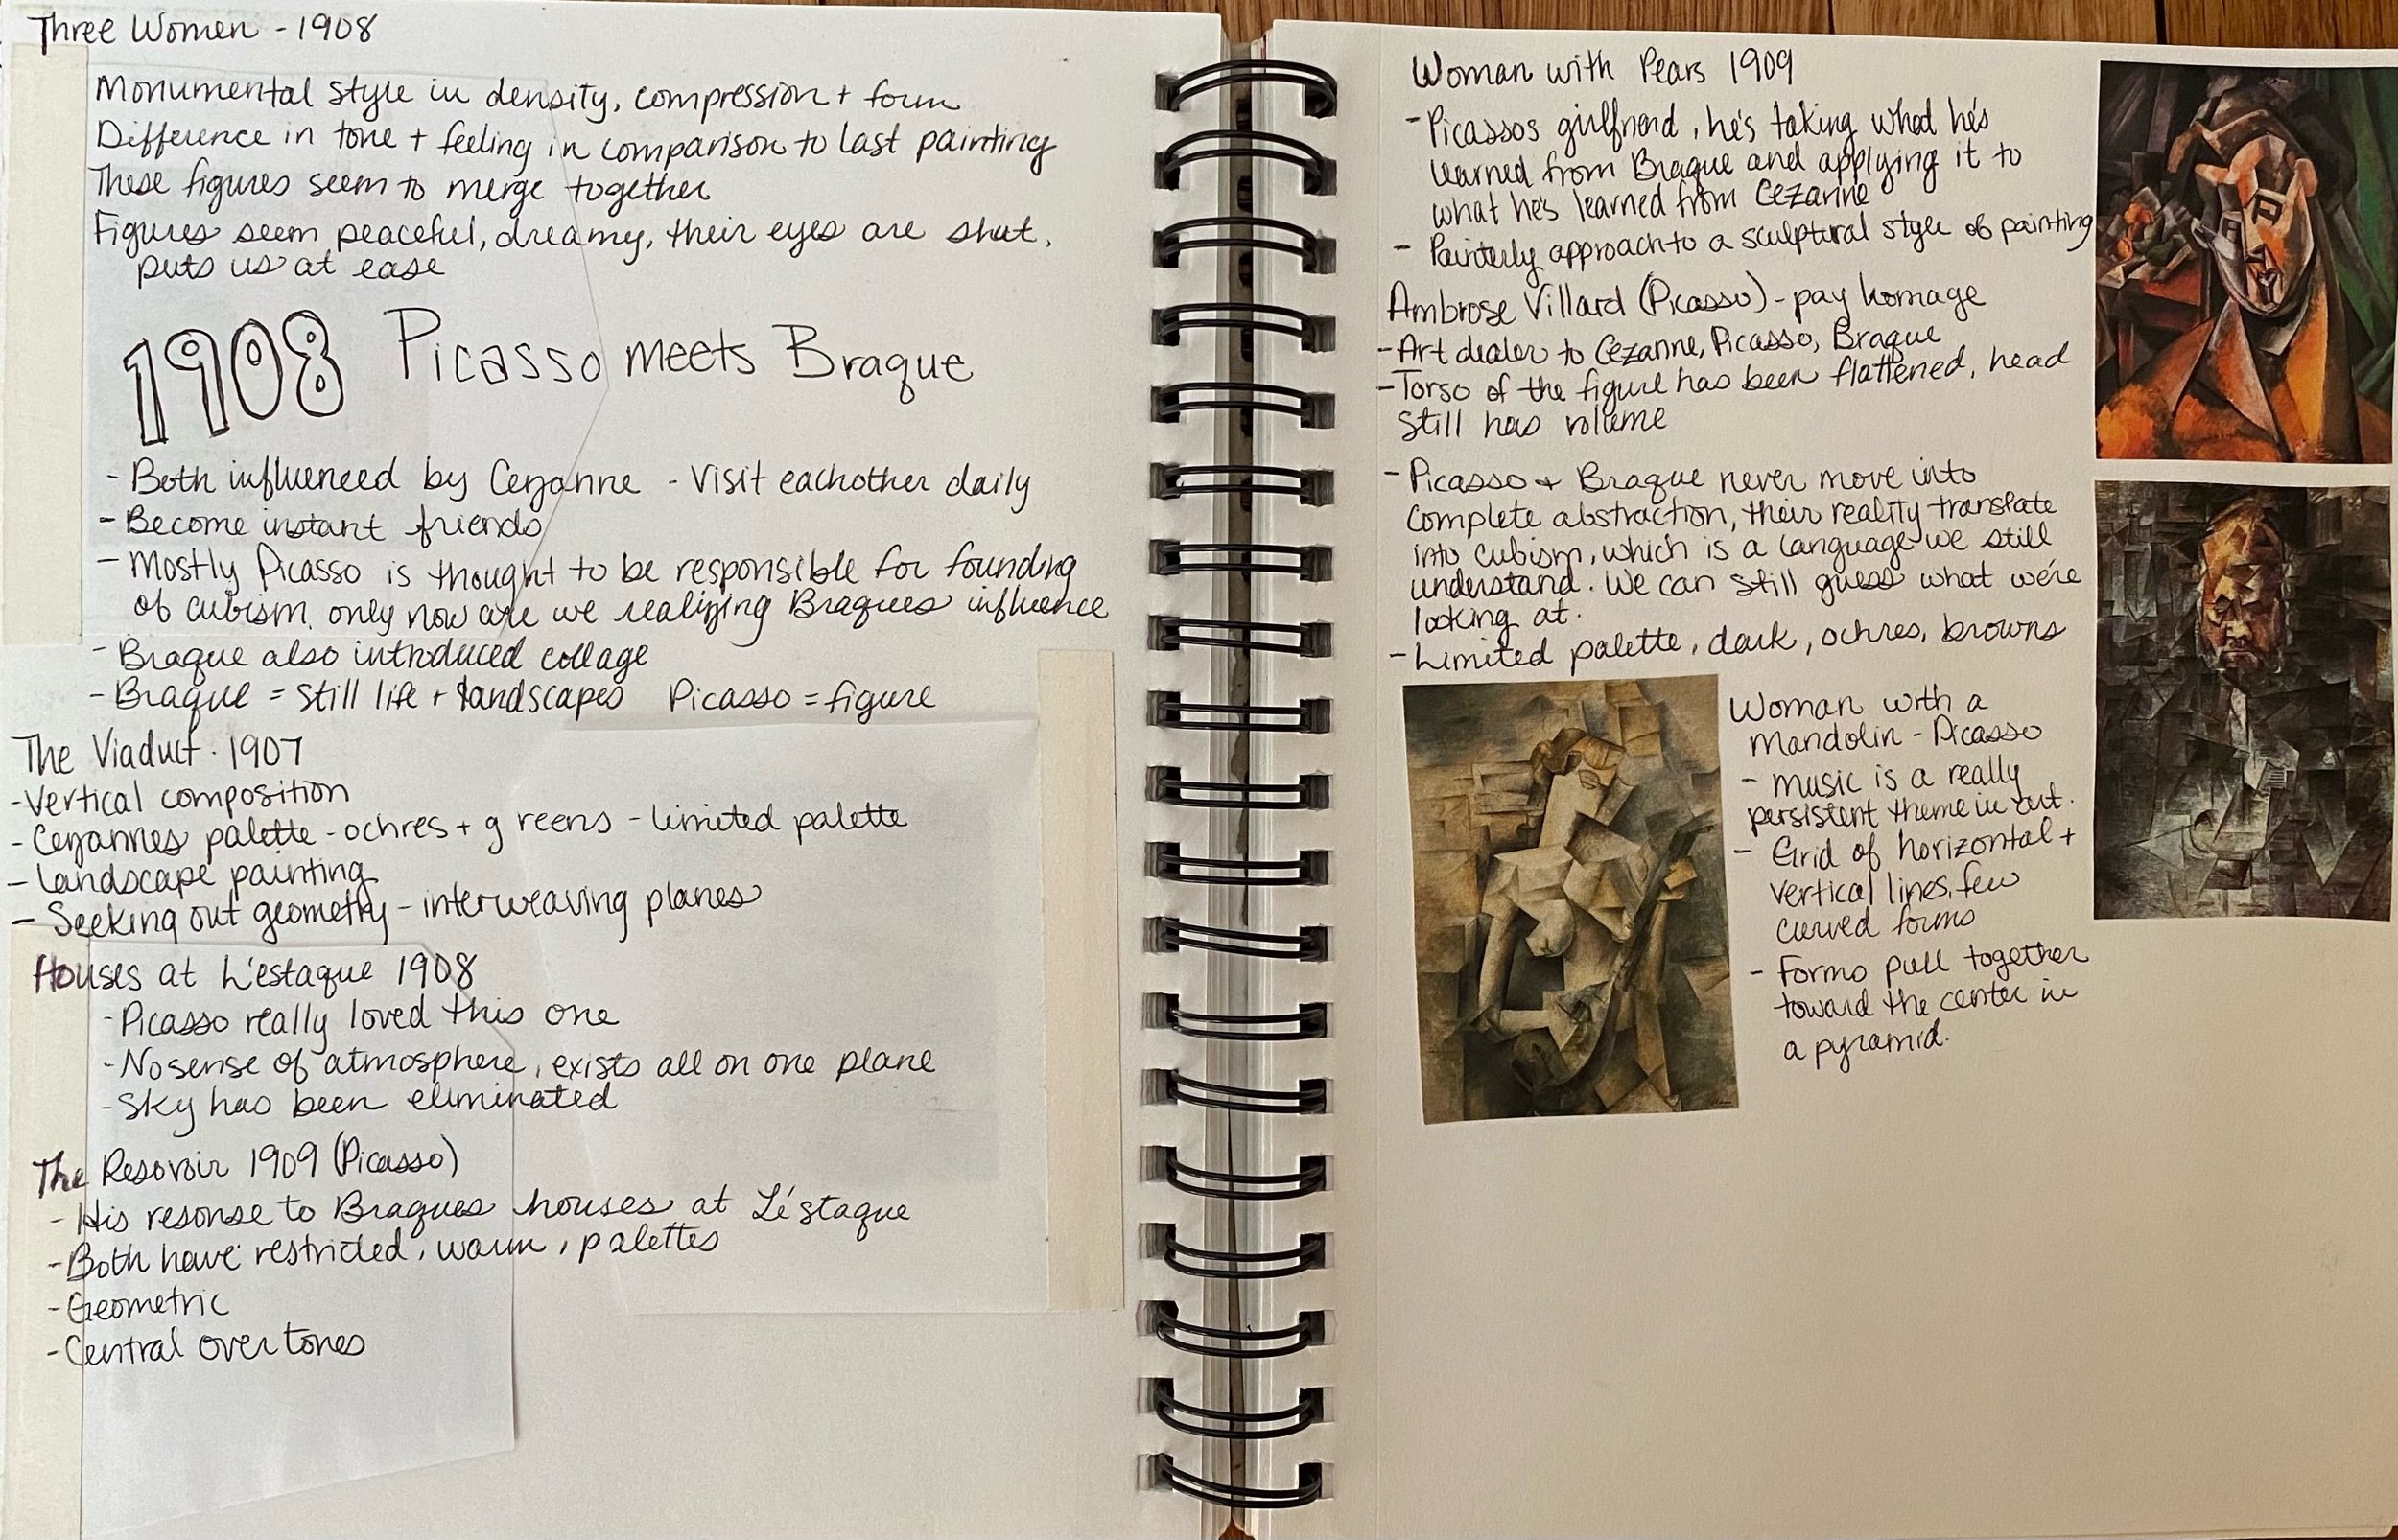 Three Women - 1908
Monumental style in density, compression + form
Difference in tone + feeling in comparison to last painting
These figures seem to merge together
Figures seem peaceful, dreamy, their eyes are shut,
puts us at ease
1908 Picasso meets Braque
- Both influenced by Cezanne - Visit eachother daily
- Become instant friends
- Mostly Picasso is thought to be responsible for founding
of cubism, only now are we realizing Braques influence
- Braque also introduced collage
- Braque = still life + landscapes Picasso = figure
The Viaduct · 1907
- Vertical composition
- Cezannes palette - ochres + greens - limited palette
- landscape painting
- Seeking out geometry - interweaving planes
Houses at L'estaque 1908
- Picasso really loved this one
- No sense of atmosphere, exists all on one plane
- Sky has been eliminated
The Resovoir 1909 (Picasso)
- His resonse to Braques houses at L'éstaque
- Both have restricted, warm, palettes
- Geometric
- Central over tones
Woman with Pears 1909
- Picassos girlfriend, he's taking what he's
learned from Braque and applying it to
what he's learned from Cezanne
- Painterly approach to a sculptural style of painting
Ambrose Villard (Picasso) - pay homage
- Art dealer to Cezanne, Picasso, Braque
- Torso of the figure has been flattened, head
still has volume
- Picasso + Braque never move into
complete abstraction, their reality translate
into cubism, which is a language we still
understand. We can still guess what we're
looking at.
- Limited palette, dark, ochres, browns
Woman with a
Mandolin - Picasso
- music is a really
persistent theme in art.
- Grid of horizontal +
vertical lines, few
curved forms
- Forms pull together
toward the center in
a pyramid.